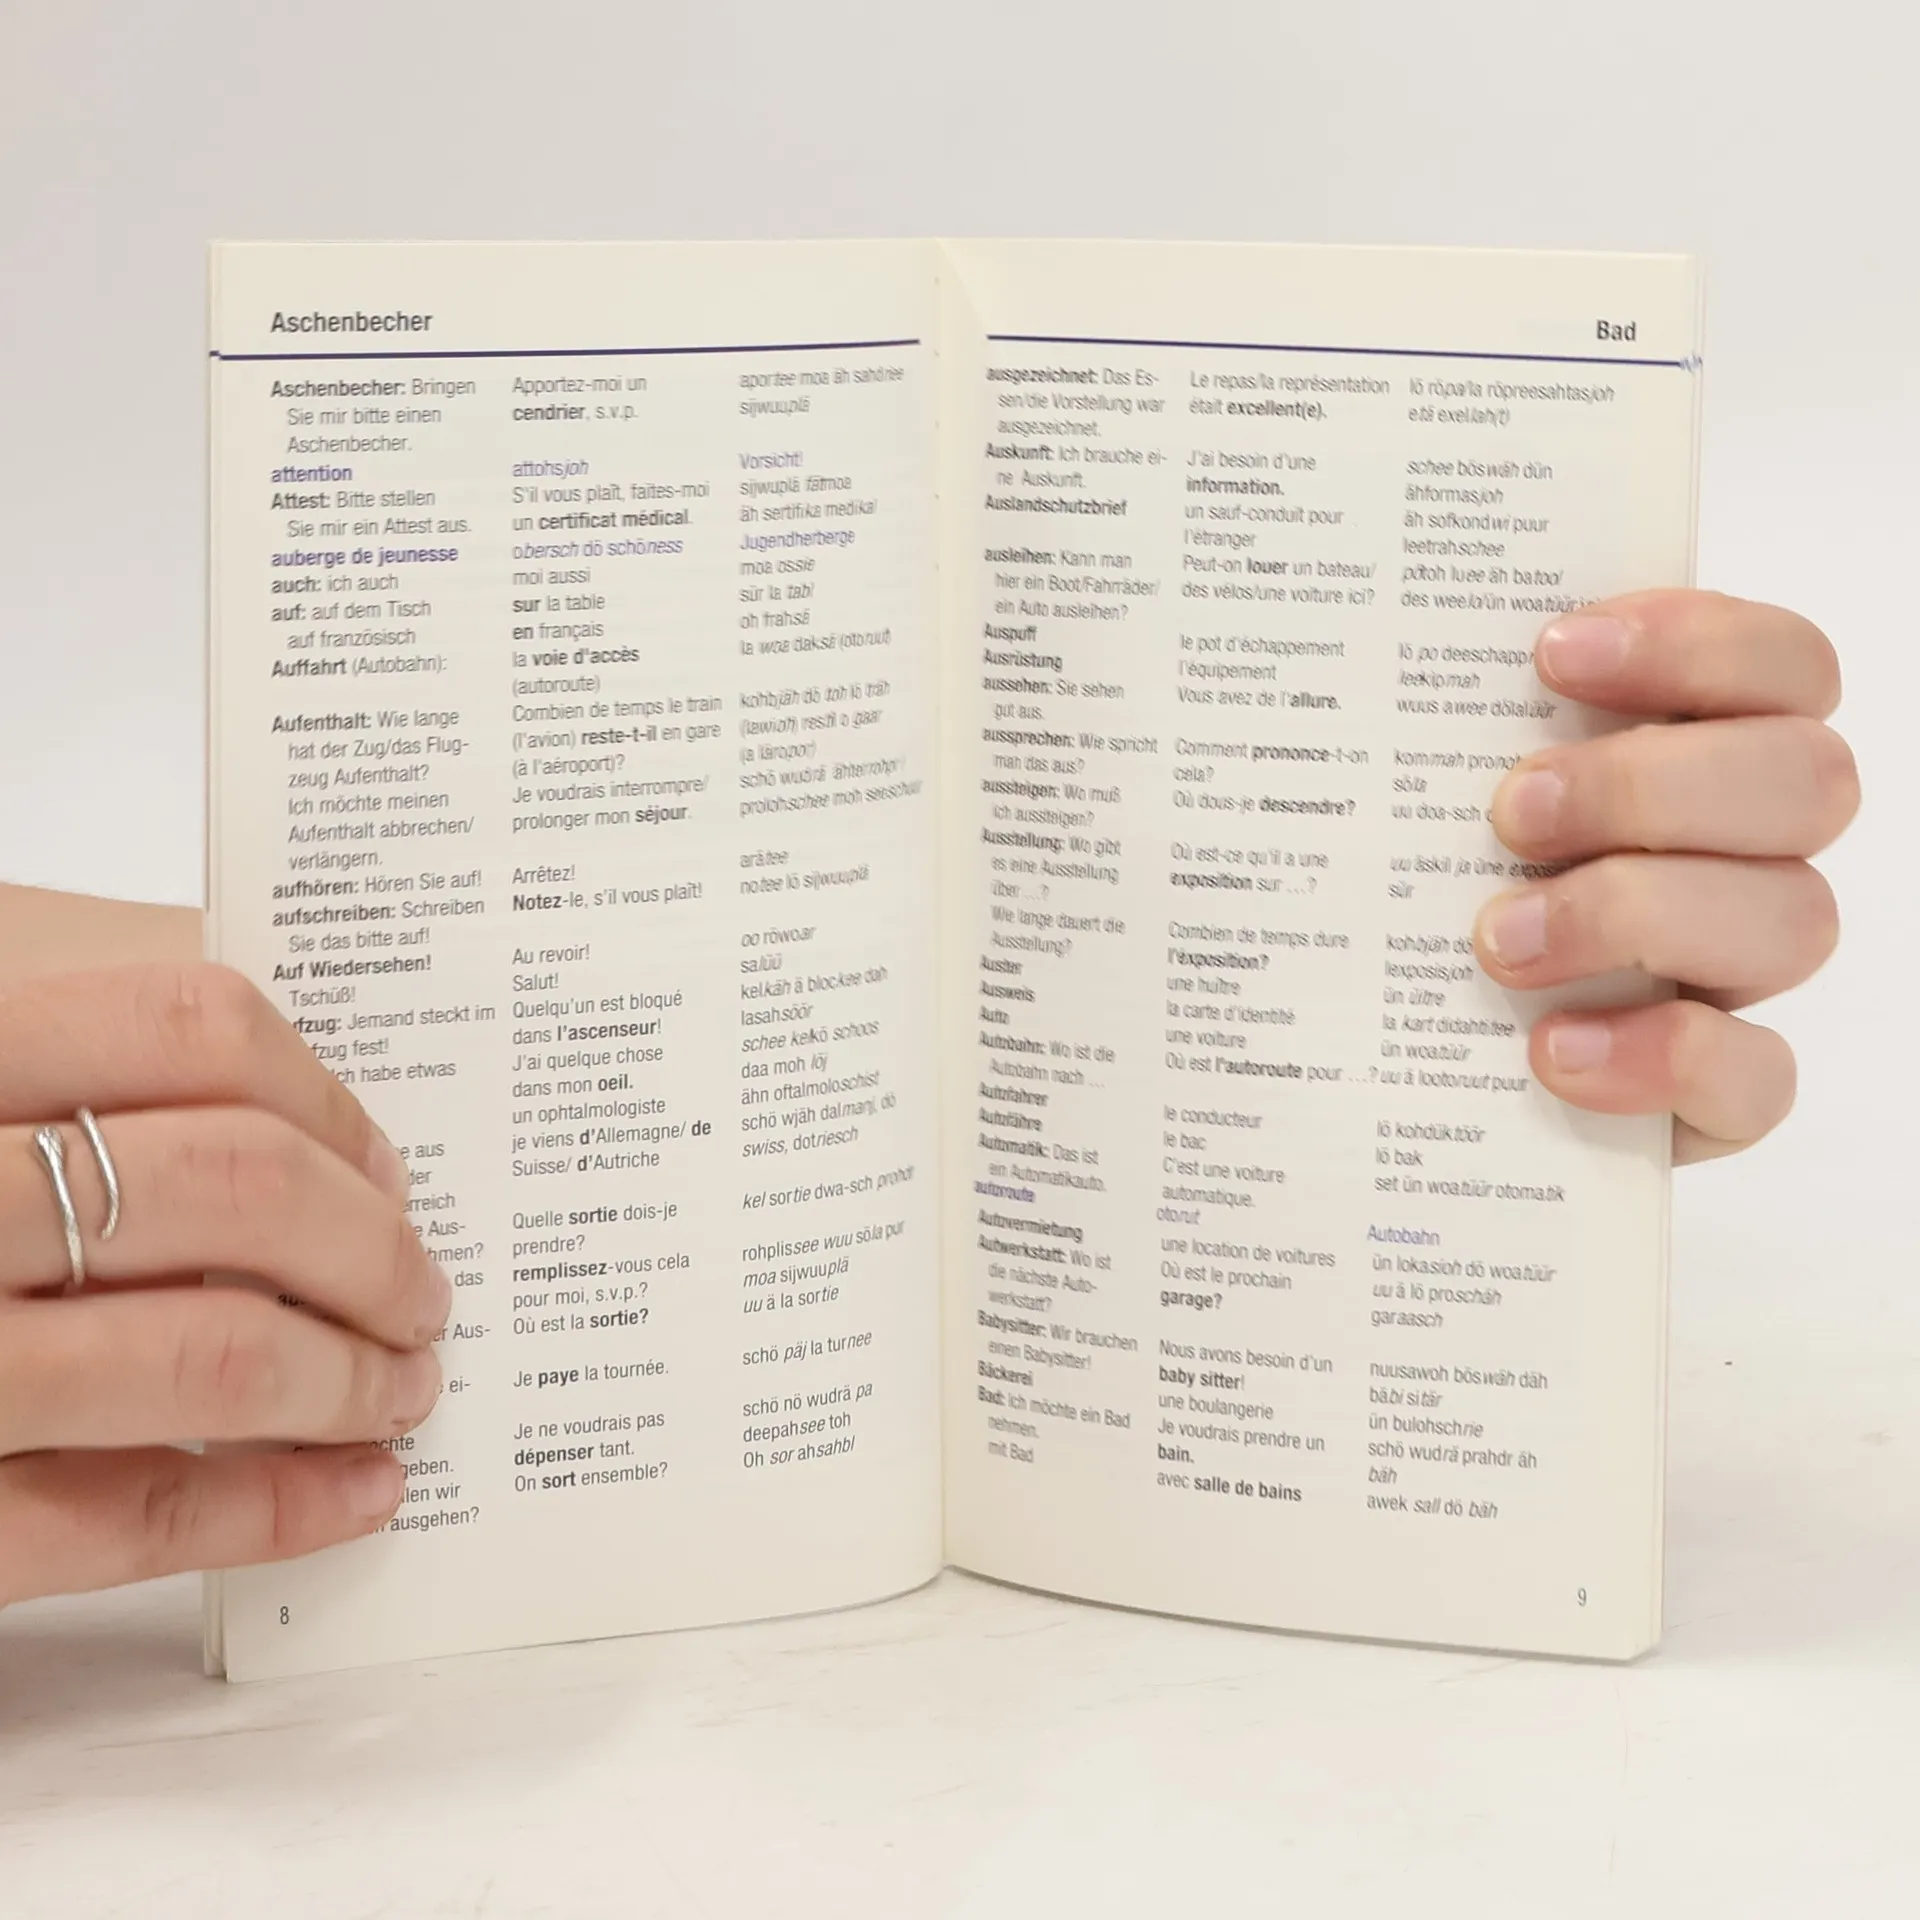 Aschenbecher
Aschenbecher: Bringen
Sie mir bitte einen
Aschenbecher.
attention
Attest: Bitte stellen
Sie mir ein Attest aus.
auberge de jeunesse
auch: ich auch
auf: auf dem Tisch
auf französisch
Auffahrt (Autobahn):
Aufenthalt: Wie lange
hat der Zug/das Flug-
zeug Aufenthalt?
Ich möchte meinen
Aufenthalt abbrechen/
verlängern.
aufhören: Hören Sie auf!
aufschreiben: Schreiben
Sie das bitte auf!
Auf Wiedersehen!
Tschüß!
Jemand steckt im
fest!
habe etwas
aus
das
Aus-
ei-
wir
ausgehen?
Apportez-moi un
cendrier, s.v.p.
attohsjoh
S'il vous plaît, faites-moi
un certificat médical.
obersch dö schöness
moi aussi
sur la table
en français
la voie d'accès
(autoroute)
Combien de temps le train
(l'avion) reste-t-il en gare
(à l'aéroport)?
Je voudrais interrompre/
prolonger mon séjour.
Arrêtez!
Notez-le, s'il vous plaît!
Au revoir!
Salut!
Quelqu'un est bloqué
dans l'ascenseur!
J'ai quelque chose
dans mon oeil.
un ophtalmologiste
je viens d'Allemagne/ de
Suisse/ d'Autriche
Quelle sortie dois-je
prendre?
remplissez-vous cela
pour moi, s.v.p.?
Où est la sortie?
Je paye la tournée.
Je ne voudrais pas
dépenser tant.
On sort ensemble?
aportee moa äh sahdriee
sijwuuplä
Vorsicht!
sijwuplä fätmoa
äh sertifika medikal
Jugendherberge
moa ossie
sür la tabl
oh frahsä
la woa daksä (otoruut)
kohbjäh dö toh lö träh
(lawioh) restil o gaar
(a läropor)
schö wudrä ähterrohpr/
prolohschee moh seeschuur
arätee
notee lö sijwuuplä
oo röwoar
salüü
kelkäh ä blockee dah
lasahsöör
schee kelkö schoos
daa moh löj
ähn oftalmoloschist
schö wjäh dalmanj, dö
swiss, dotriesch
kel sortie dwa-sch prohdr
rohplissee wuu söla pur
moa sijwuuplä
uu ä la sortie
schö päj la turnee
schö nö wudrä pa
deepahsee toh
Oh sor ahsahbl
8
Bad
ausgezeichnet: Das Es-
sen/die Vorstellung war
ausgezeichnet.
Auskunft: Ich brauche ei-
ne Auskunft.
Auslandschutzbrief
ausleihen: Kann man
hier ein Boot/Fahrräder/
ein Auto ausleihen?
Auspuff
Ausrüstung
aussehen: Sie sehen
gut aus.
aussprechen: Wie spricht
man das aus?
aussteigen: Wo muß
ich aussteigen?
Ausstellung: Wo gibt
es eine Ausstellung
über ...?
Wie lange dauert die
Ausstellung?
Auster
Ausweis
Auto
Autobahn: Wo ist die
Autobahn nach ...
Autofahrer
Autofähre
Automatik: Das ist
ein Automatikauto.
autoroute
Autovermietung
Autwerkstatt: Wo ist
die nächste Auto-
werkstatt?
Babysitter: Wir brauchen
einen Babysitter!
Bäckerei
Bad: Ich möchte ein Bad
nehmen.
mit Bad
Le repas/la représentation
était excellent(e).
J'ai besoin d'une
information.
un sauf-conduit pour
l'étranger
Peut-on louer un bateau/
des vélos/une voiture ici?
le pot d'échappement
l'équipement
Vous avez de l'allure.
Comment prononce-t-on
cela?
Où dous-je descendre?
Où est-ce qu'il a une
exposition sur ...?
Combien de temps dure
l'éxposition?
une huître
la carte d'identité
une voiture
Où est l'autoroute pour ...?
le conducteur
le bac
C'est une voiture
automatique.
otorut
une location de voitures
Où est le prochain
garage?
Nous avons besoin d'un
baby sitter!
une boulangerie
Je voudrais prendre un
bain.
avec salle de bains
lö röpa/la röpreesahtasjoh
etä exellah(t)
schee böswäh dün
ähformasjoh
äh sofkondwi puur
leetrahschee
pötoh luee äh batoo/
des weelo/ün woatüür
lö po
leekipmah
wuus awee dölalüür
kommah
söla
uu doa-sch
uu äskil ja üne
sür
kohbjäh dö
lexposisjoh
ün üitre
la kart didahtitee
ün woatüür
uu ä lootoruut puur
lö kohdüktöör
lö bak
set ün woatüür otomatik
Autobahn
ün lokasioh dö woatüür
uu ä lö proschäh
garaasch
nuusawoh böswäh däh
bäbi sitär
ün bulohschrie
schö wudrä prahdr äh
bäh
awek sall dö bäh
9